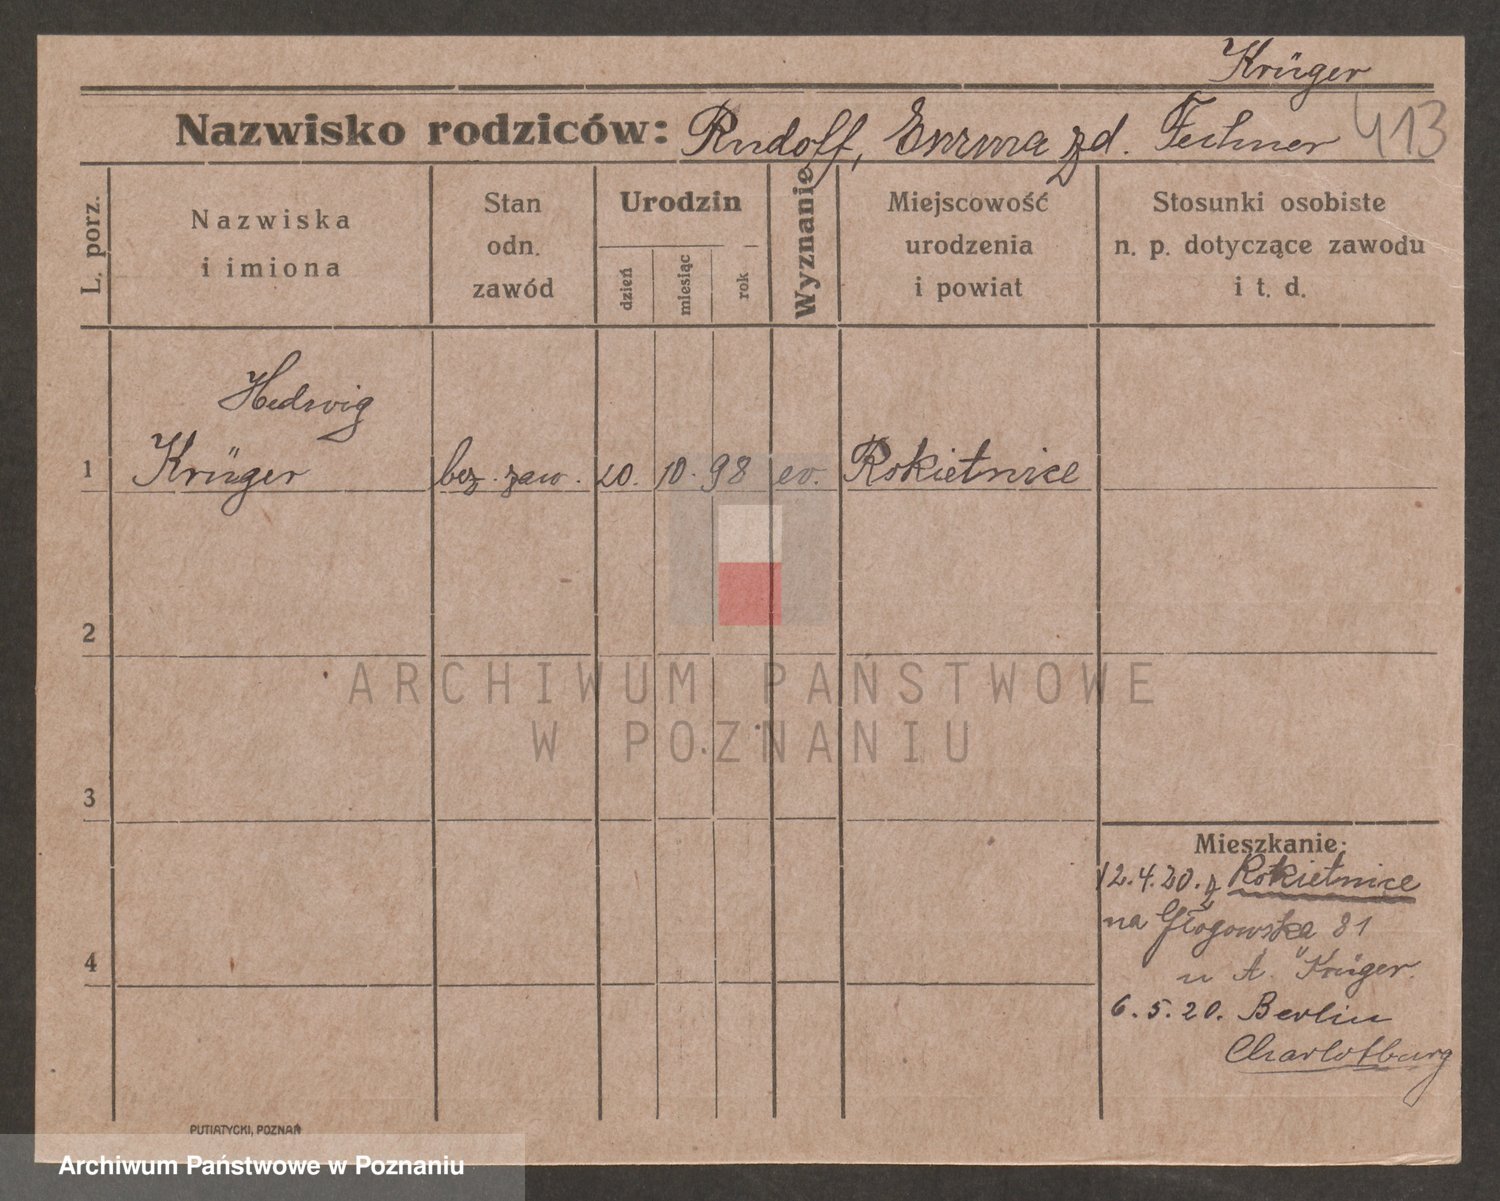 Krüger
Nazwisko rodziców: Rudolf, Emma zd. Fechner 413
L. porz.
Nazwiska
i imiona
Stan
odn.
zawód
Urodzin
dzień
miesiąc
rok
Wyznanie
Miejscowość
urodzenia
i powiat
Stosunki osobiste
n. p. dotyczące zawodu
i t. d.
Hedwig
1 Krüger bez. zaw. 20. 10. 98 ev. Rokietnice
2
ARCHIWUM PAŃSTWOWE
W POZNANIU
3
Mieszkanie:
12.4.20. z Rokietnice
na Głogowska 81
4
u A. Krüger.
6. 5. 20. Berlin
Charlotburg
PUTIATYCKI, POZNAŃ
Archiwum Państwowe w Poznaniu